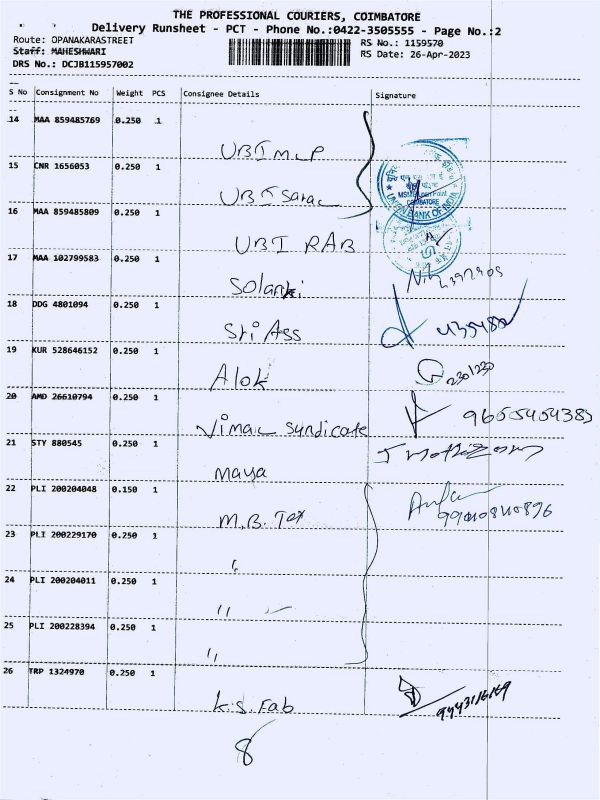 THE PROFESSIONAL COURIERS, COIMBATORE
Delivery Runsheet - PCT - Phone No.:0422-3505555 - Page No.:2
Route: OPANAKARASTREET
RS No.: 1159570
Staff: MAHESHWARI
RS Date: 26-Apr-2023
DRS No.: DCJB115957002
S No Consignment No Weight PCS Consignee Details Signature
14 MAA 859485769 0.250 1
UBI MLP
15 CNR 1656053 0.250 1
UBI Sarac
16 MAA 859485809 0.250 1
UBI RAB
UNION BANK OF INDIA
COIMBATORE
17 MAA 102799583 0.250 1
Solanki
18 DDG 4801094 0.250 1
Sri Ass
19 KUR 528646152 0.250 1
Alok
2301230
20 AMD 26610794 0.250 1
Vimal Syndicate
21 STY 880545 0.250 1
Maya
22 PLI 200204048 0.150 1
M.B. Tex
23 PLI 200229170 0.250 1
"
24 PLI 200204011 0.250 1
"
25 PLI 200228394 0.250 1
"
26 TRP 1324970 0.250 1
K.S. Fab
8